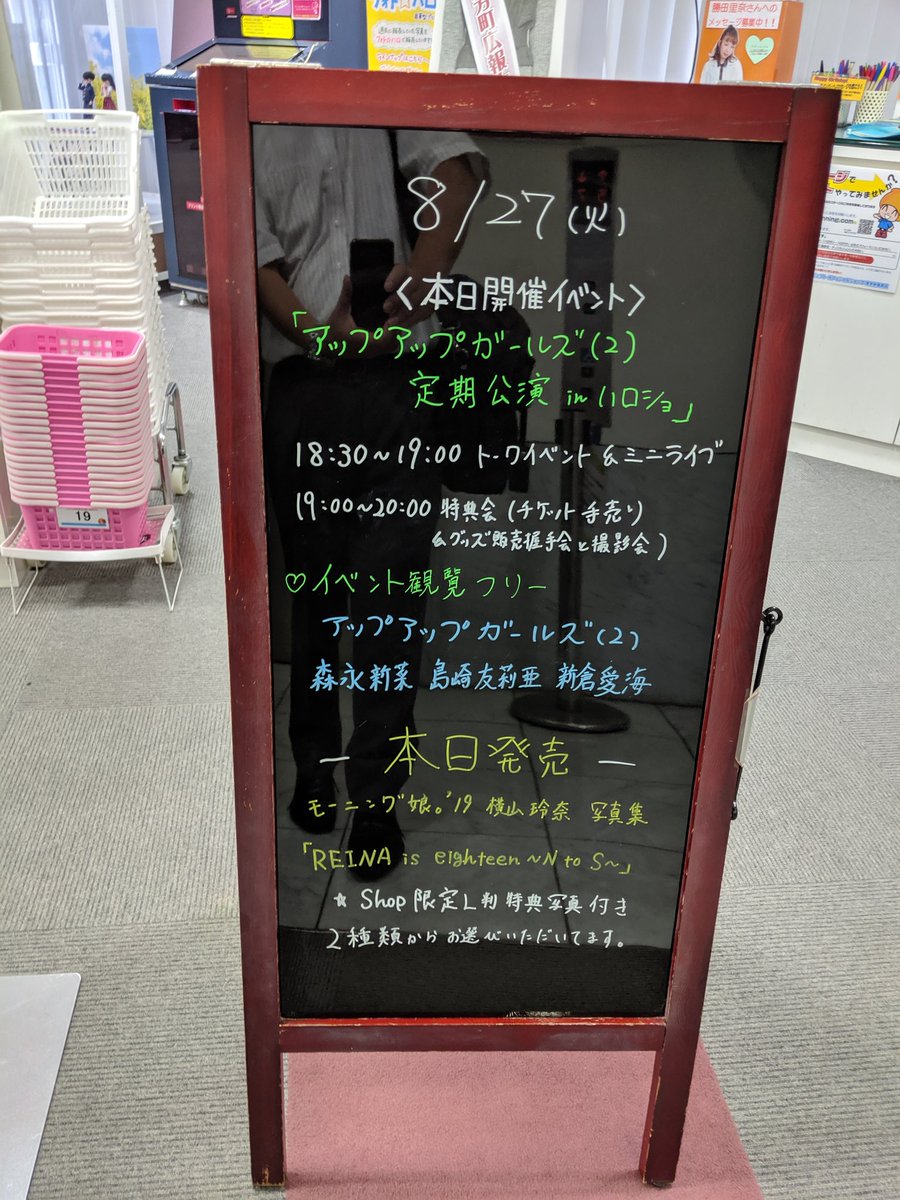 勝田里奈さんへの
メッセージ募集中!!
町広報
やってみませんか?
19
8/27(火)
<本日開催イベント>
「アップアップガールズ(2)
定期公演 in ハロショ」
18:30~19:00 トークイベント&ミニライブ
19:00~20:00 特典会(チケット手売り
&グッズ販売握手会と撮影会)
♡イベント観覧フリー
アップアップガールズ(2)
森永新菜 島崎友莉亜 新倉愛海
― 本日発売 ―
モーニング娘。'19 横山玲奈 写真集
「REINA is eighteen ~N to S~」
☆ Shop限定L判特典写真付き
2種類からお選びいただいてます。